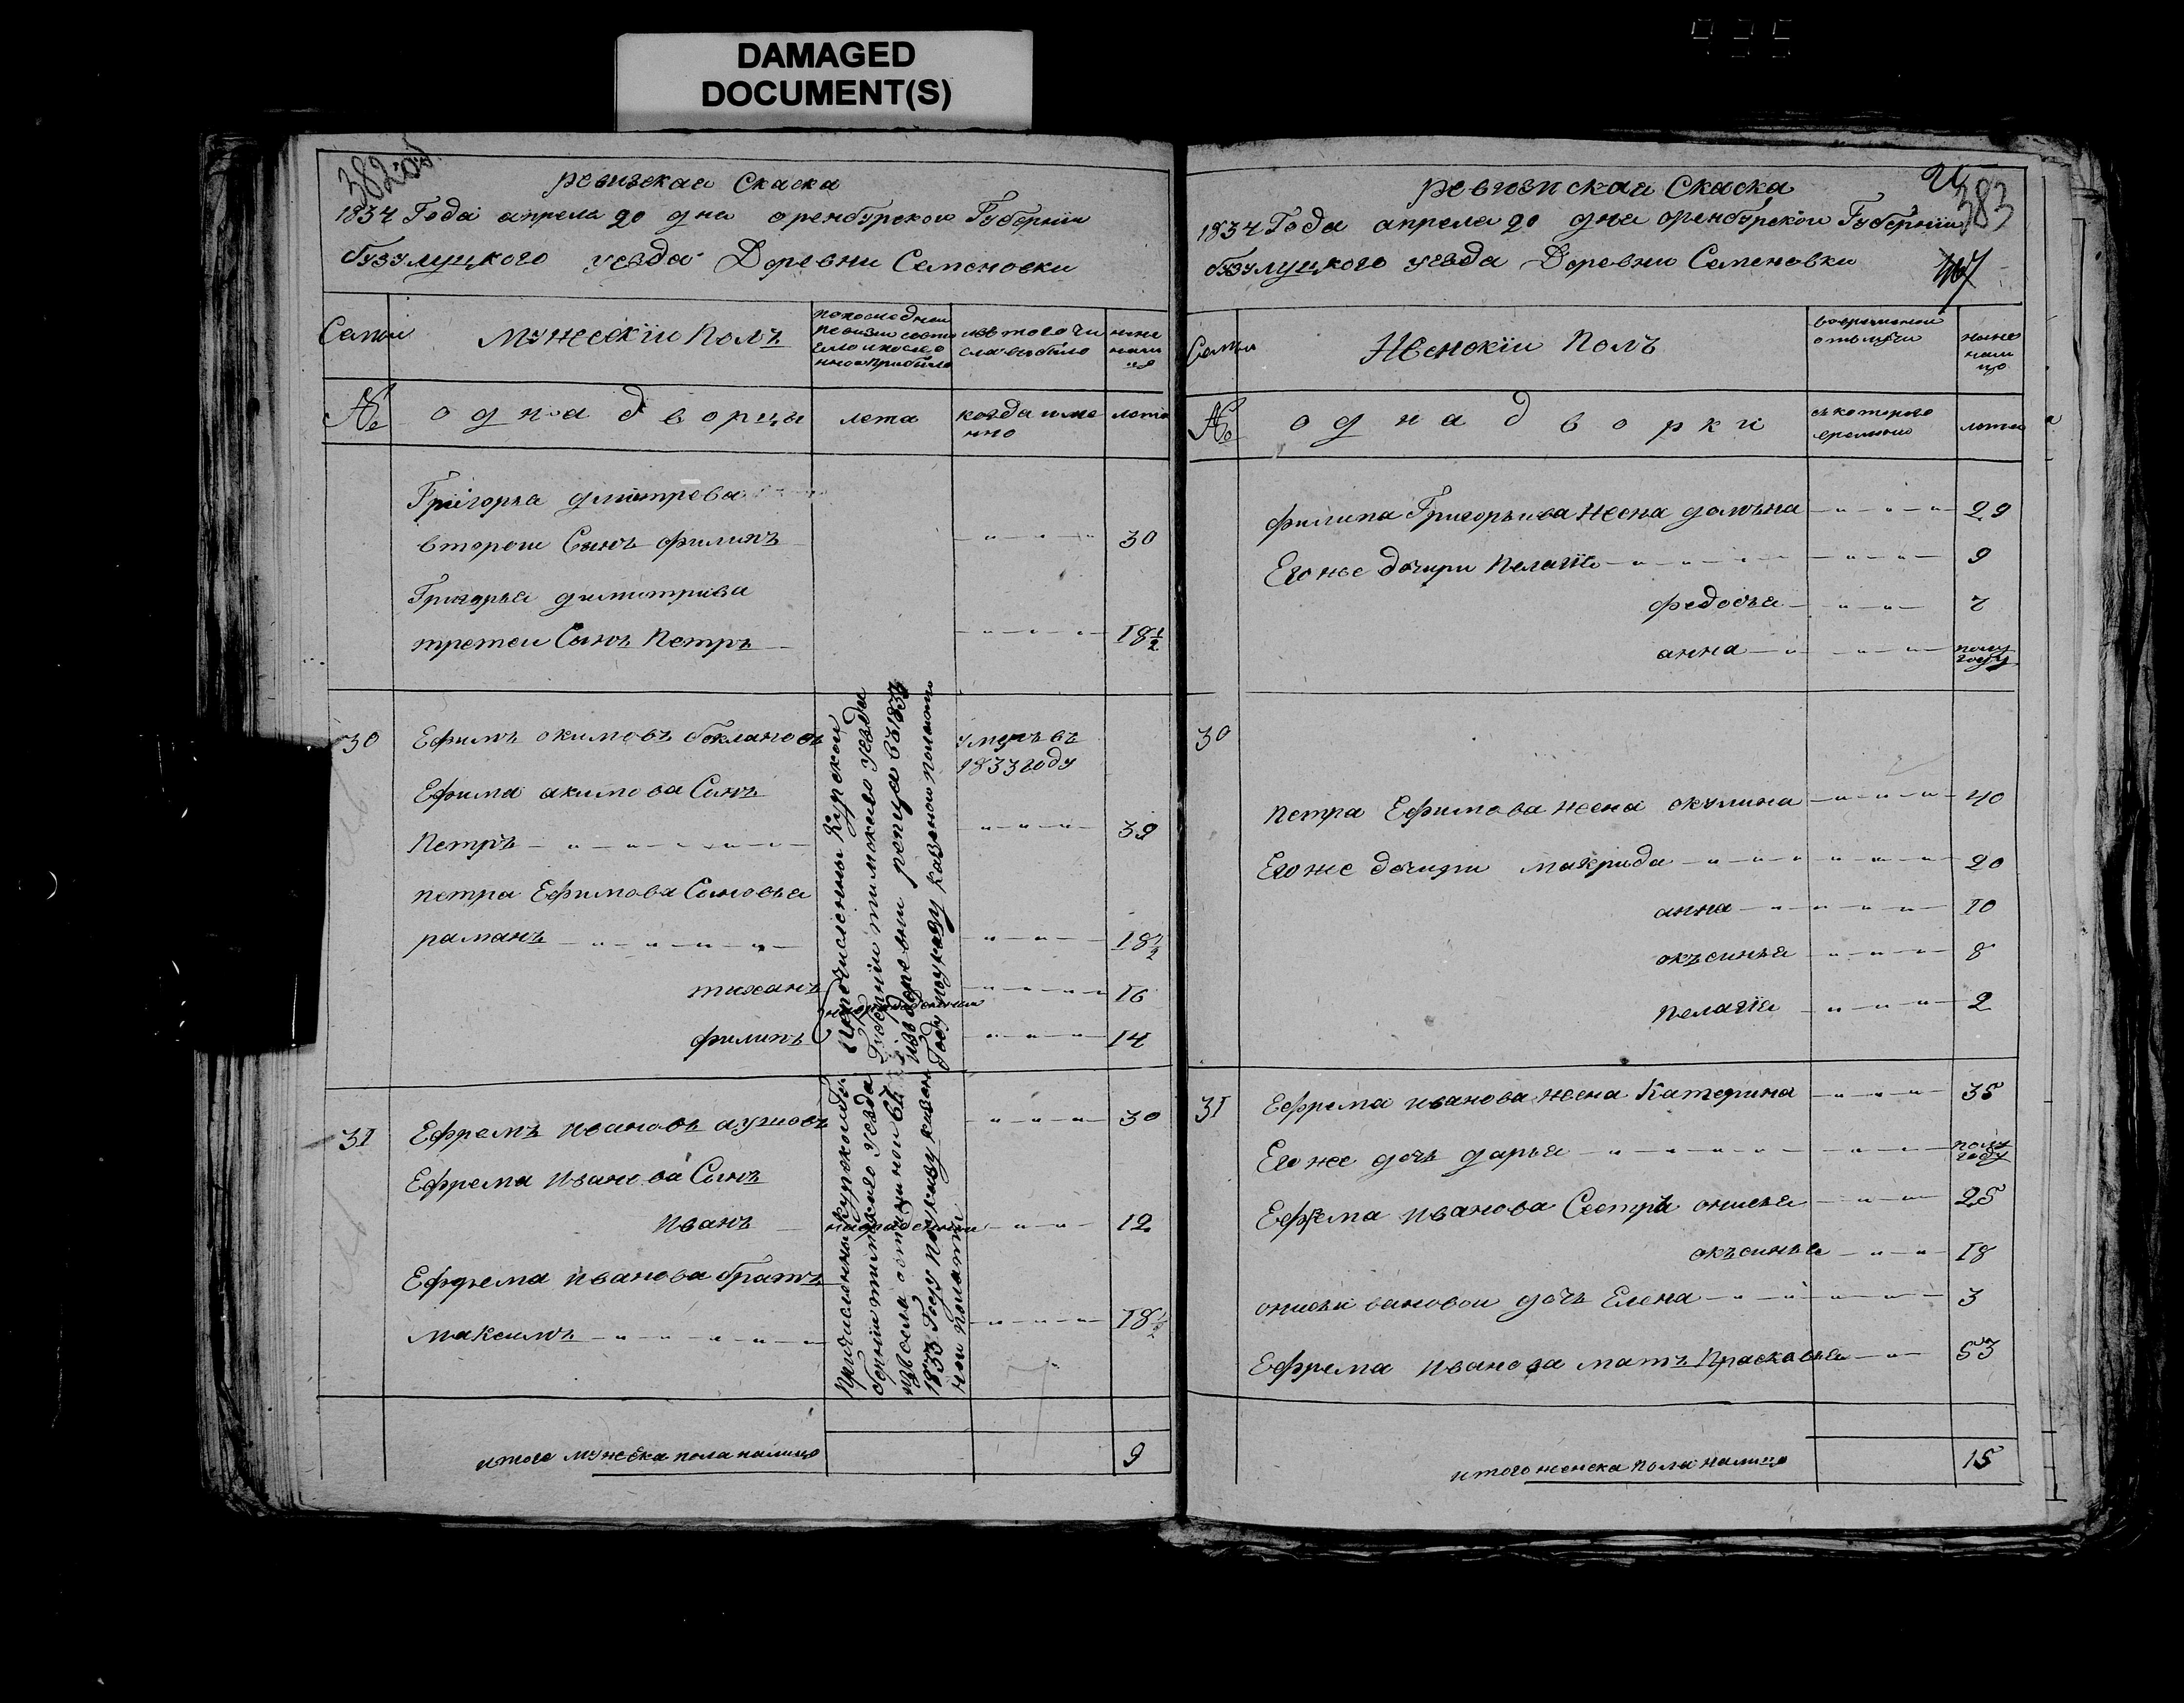 DAMAGED
DOCUMENT(S)
382 об.
ревизская Скаска
1834 Года апреля 20 дня оренбурской Губернии
бузулуцкого уезда Деревни Семеновки
Семьи
Мужескїи Полъ
ис того чи
сла выбыло
ныне
нали
цо
№
однадворцы
лета
когда име
нно
лета
Григорья дмитрева
второи Сынъ филипъ
30
Григорья димитрива
третеи Сынъ Петръ
18 1/2
30
Ефимъ окимовъ боклановъ
умеръ въ
1833 году
Ефима акимова Сынъ
Петръ
39
петра Ефимова Сыновья
раманъ
18 1/2
тиханъ
16
филипъ
14
Перечисленны Курской
Губернїи тимскаго уезда
из деревни репица въ 1832
Году по указу казеной полаты
31
Ефремъ Ивановъ аушовъ
30
Ефрема Иванова Сынъ
Иванъ
12
Ефрема Иванова братъ
максимъ
18 1/2
Причисленны курской Гу
бернїи тимскаго уезда
1833 Году по указу казен
ной полаты
итого мужеска пола налицо
9
383
ревизиская Скаска
1834 Года апреля 20 дня оренбурской Губернїи
бузулуцкого уезда Деревни Семеновки
Семьи
Женскїи Полъ
во временнои
отлучки
ныне
нали
цо
№
однадворки
съ которого
времени
лета
филипа Григорьива жена домъна
29
Его же дочири Пелагїя
9
федосья
7
анна
полу
году
30
Петра Ефимова жена окулина
40
Его же дочири макрида
20
анна
10
окъсинья
8
Пелагїя
2
31
Ефрема иванова жена Катерина
35
Его же дочь дарья
полу
году
Ефрема Иванова Сестра онисья
25
окъсинья
18
онисьи вановои дочь Елена
3
Ефрема Иванова мать Прасковья
53
итого женска пола налицо
15